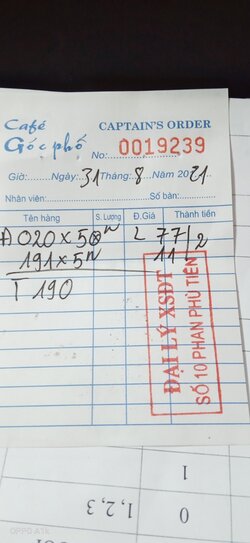 Café
Góc phố
CAPTAIN'S ORDER
No: 0019239
Giờ: Ngày: 31 Tháng: 8 Năm 2021
Nhân viên: Số bàn:
Tên hàng S. Lượng Đ.Giá Thành tiền
020 x 50n L 77/2
191 x 5n 11
T 190
ĐẠI LÝ XSĐT
SỐ 10 PHAN PHÙ TIÊN
1
1, 2, 3 0
OPPO A1k